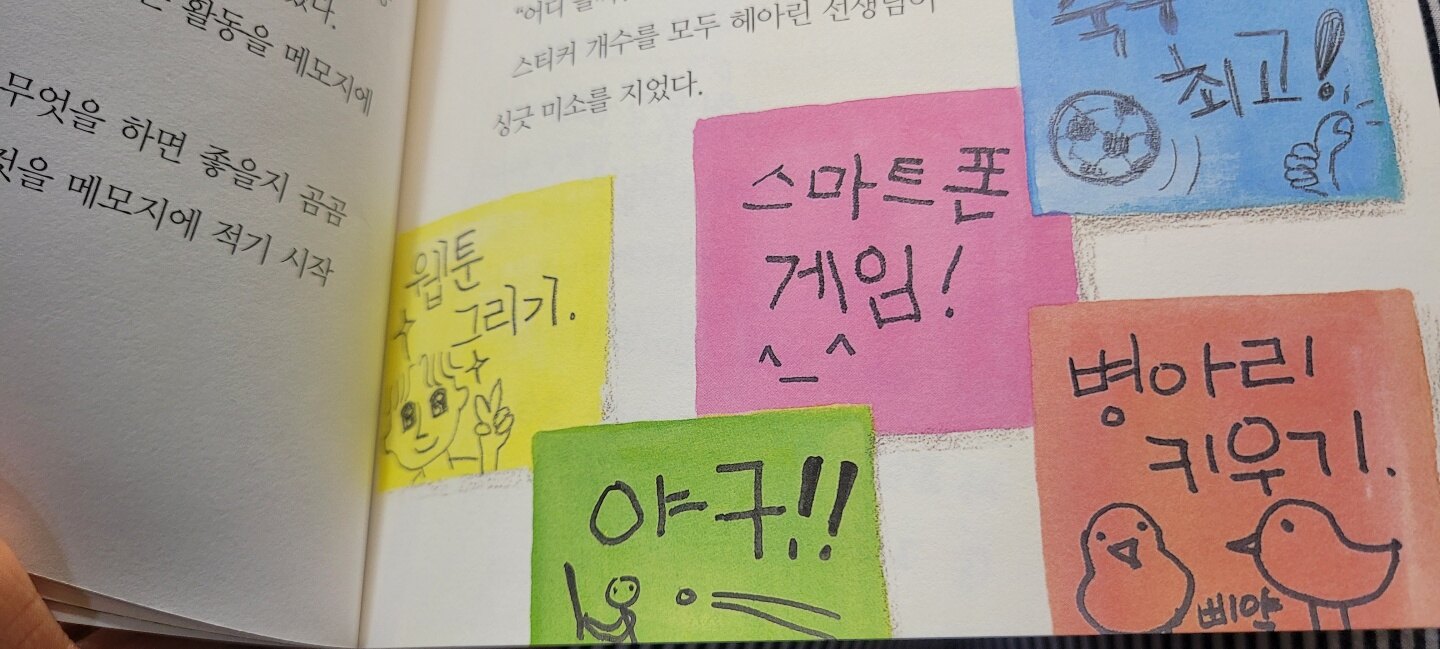 활동을 메모지에
무엇을 하면 좋을지 곰곰
메모지에 적기 시작
"어디
스티커 개수를 모두 헤아린 선생님이
싱긋 미소를 지었다.
최고!
스마트폰
게임!
웹툰
그리기.
병아리
키우기.
야구!!
삐약